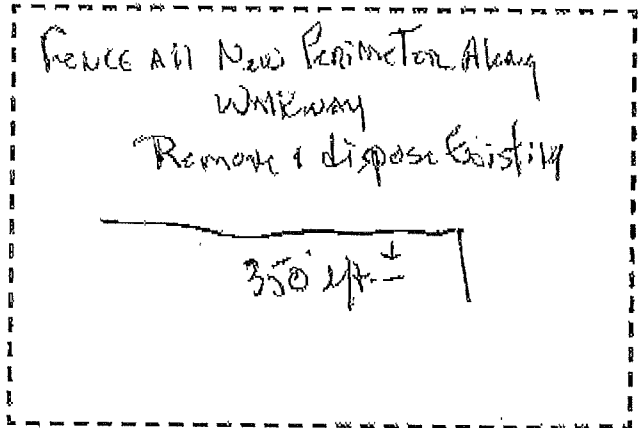 Fence All New Perimeter Along
Walkway
Remove & dispose Existing
350' l/ft. ±